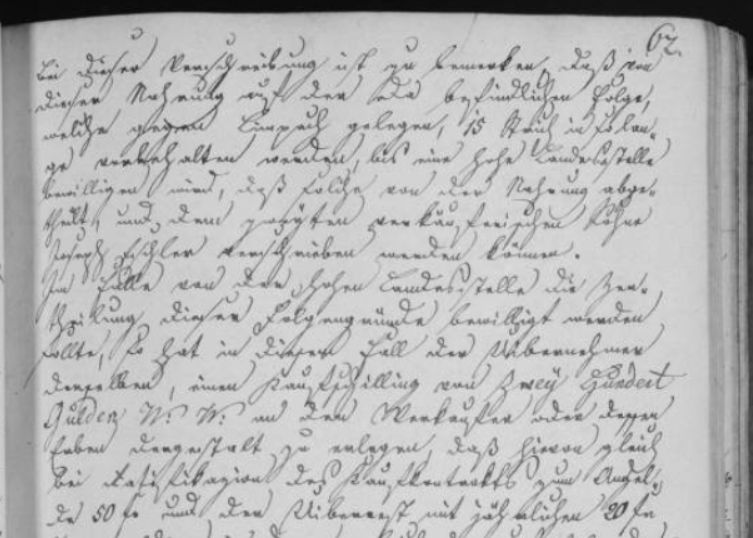 62.
Bei dieser Verschreibung ist zu bemerken, daß von
dieser Nahrung auf der da befindlichen Folge,
welche gegen Limpach gelegen, 15 Strich in so lan-
ge vorbehalten werden, bis eine hohe Landesstelle
bewilligen wird, daß solche von der Nahrung abge-
theilt, und dem zweyten verkäuferischen Sohne
Joseph verschrieben werden können.
Im Falle von der hohen Landesstelle die Zer-
theilung dieser Folgengründe bewilligt werden
sollte, so hat in diesem Fall der Uibernehmer
derselben, einen Kaufschilling von Zwey Hundert
Gulden W. W. an den Verkäufer oder dessen
Erben dergestalt zu erlegen, daß hievon gleich
bei Ratifikazion des Kaufkontrakts zum Angel-
de 50 fr und der Uiberrest mit jährlichen 20 fr